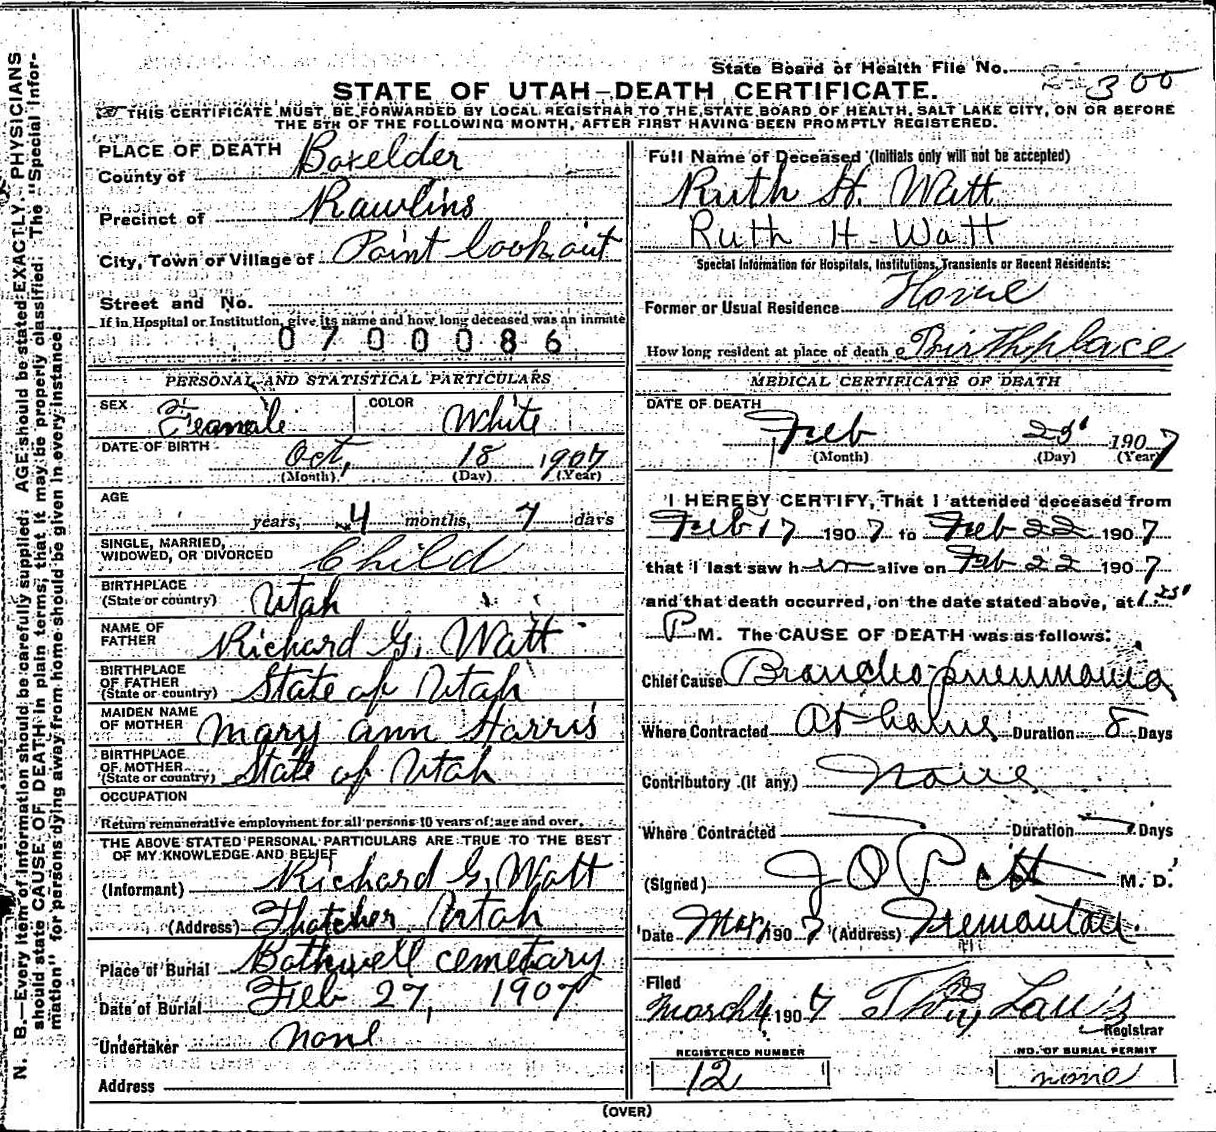 State Board of Health File No. 2-300
STATE OF UTAH-DEATH CERTIFICATE.
THIS CERTIFICATE MUST BE FORWARDED BY LOCAL REGISTRAR TO THE STATE BOARD OF HEALTH, SALT LAKE CITY, ON OR BEFORE
THE 5TH OF THE FOLLOWING MONTH, AFTER FIRST HAVING BEEN PROMPTLY REGISTERED.
PLACE OF DEATH
County of Boxelder
Precinct of Rawlins
City, Town or Village of Point look out
Street and No.
If in Hospital or Institution, give its name and how long deceased was an inmate
0700086
PERSONAL AND STATISTICAL PARTICULARS
SEX Feamale COLOR White
DATE OF BIRTH Oct, 18 1907
(Month) (Day) (Year)
AGE
years, 4 months, 7 days
SINGLE, MARRIED,
WIDOWED, OR DIVORCED Child
BIRTHPLACE
(State or country) Utah
NAME OF
FATHER Richard G. Watt
BIRTHPLACE
OF FATHER
(State or country) State of Utah
MAIDEN NAME
OF MOTHER Mary ann Harris
BIRTHPLACE
OF MOTHER
(State or country) State of Utah
OCCUPATION
Return remunerative employment for all persons 10 years of age and over.
THE ABOVE STATED PERSONAL PARTICULARS ARE TRUE TO THE BEST
OF MY KNOWLEDGE AND BELIEF
(Informant) Richard G. Watt
(Address) Thatcher Utah
Place of Burial Bothwell cemetary
Date of Burial Feb 27, 1907
Undertaker none
Address
Full Name of Deceased (Initials only will not be accepted)
Ruth H. Watt
Ruth H. Watt
Special Information for Hospitals, Institutions, Transients or Recent Residents:
Former or Usual Residence Home
How long resident at place of death Birthplace
MEDICAL CERTIFICATE OF DEATH
DATE OF DEATH
Feb 25 1907
(Month) (Day) (Year)
I HEREBY CERTIFY, That I attended deceased from
Feb 17 1907 to Feb 22 1907
that I last saw her alive on Feb 22 1907
and that death occurred, on the date stated above, at 1.25
P M. The CAUSE OF DEATH was as follows:
Chief Cause Broncho-pneumonia
Where Contracted At home Duration 8 Days
Contributory (if any) None
Where Contracted Duration Days
(Signed) M. D.
Date Mar 1 1907 (Address)
Filed
March 4 1907
Registrar
REGISTERED NUMBER
12
NO. OF BURIAL PERMIT
none
(OVER)
N. B.—Every item of information should be carefully supplied. AGE should be stated EXACTLY. PHYSICIANS
should state CAUSE OF DEATH in plain terms, that it may be properly classified. The "Special Infor-
mation" for persons dying away from home should be given in every instance.